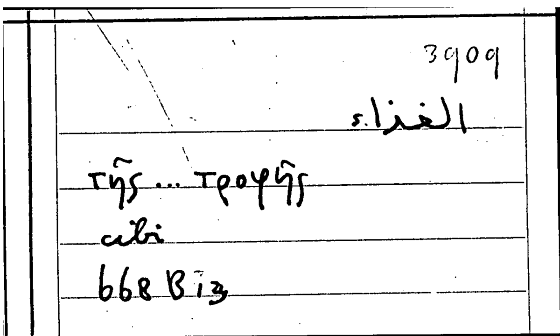 3909
الغذاء
τῆς ... τροφῆς
cibi
668 B 13